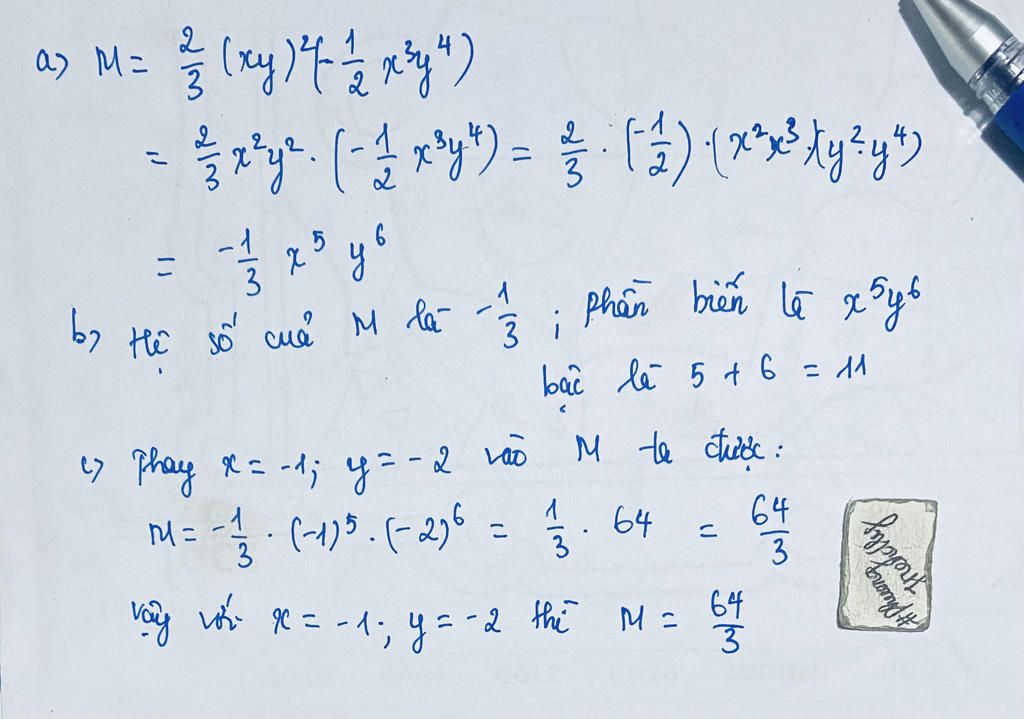 a) M = 2/3 (xy)²(-1/2 x³y⁴)
= 2/3 x²y² · (-1/2 x³y⁴) = 2/3 · (-1/2) · (x²x³)·(y²·y⁴)
= -1/3 x⁵ y⁶
b) Hệ số của M là -1/3 ; phần biến là x⁵y⁶
bậc là 5 + 6 = 11
c) Thay x = -1; y = -2 vào M ta được:
M = -1/3 · (-1)⁵ · (-2)⁶ = 1/3 · 64 = 64/3
Vậy với x = -1; y = -2 thì M = 64/3